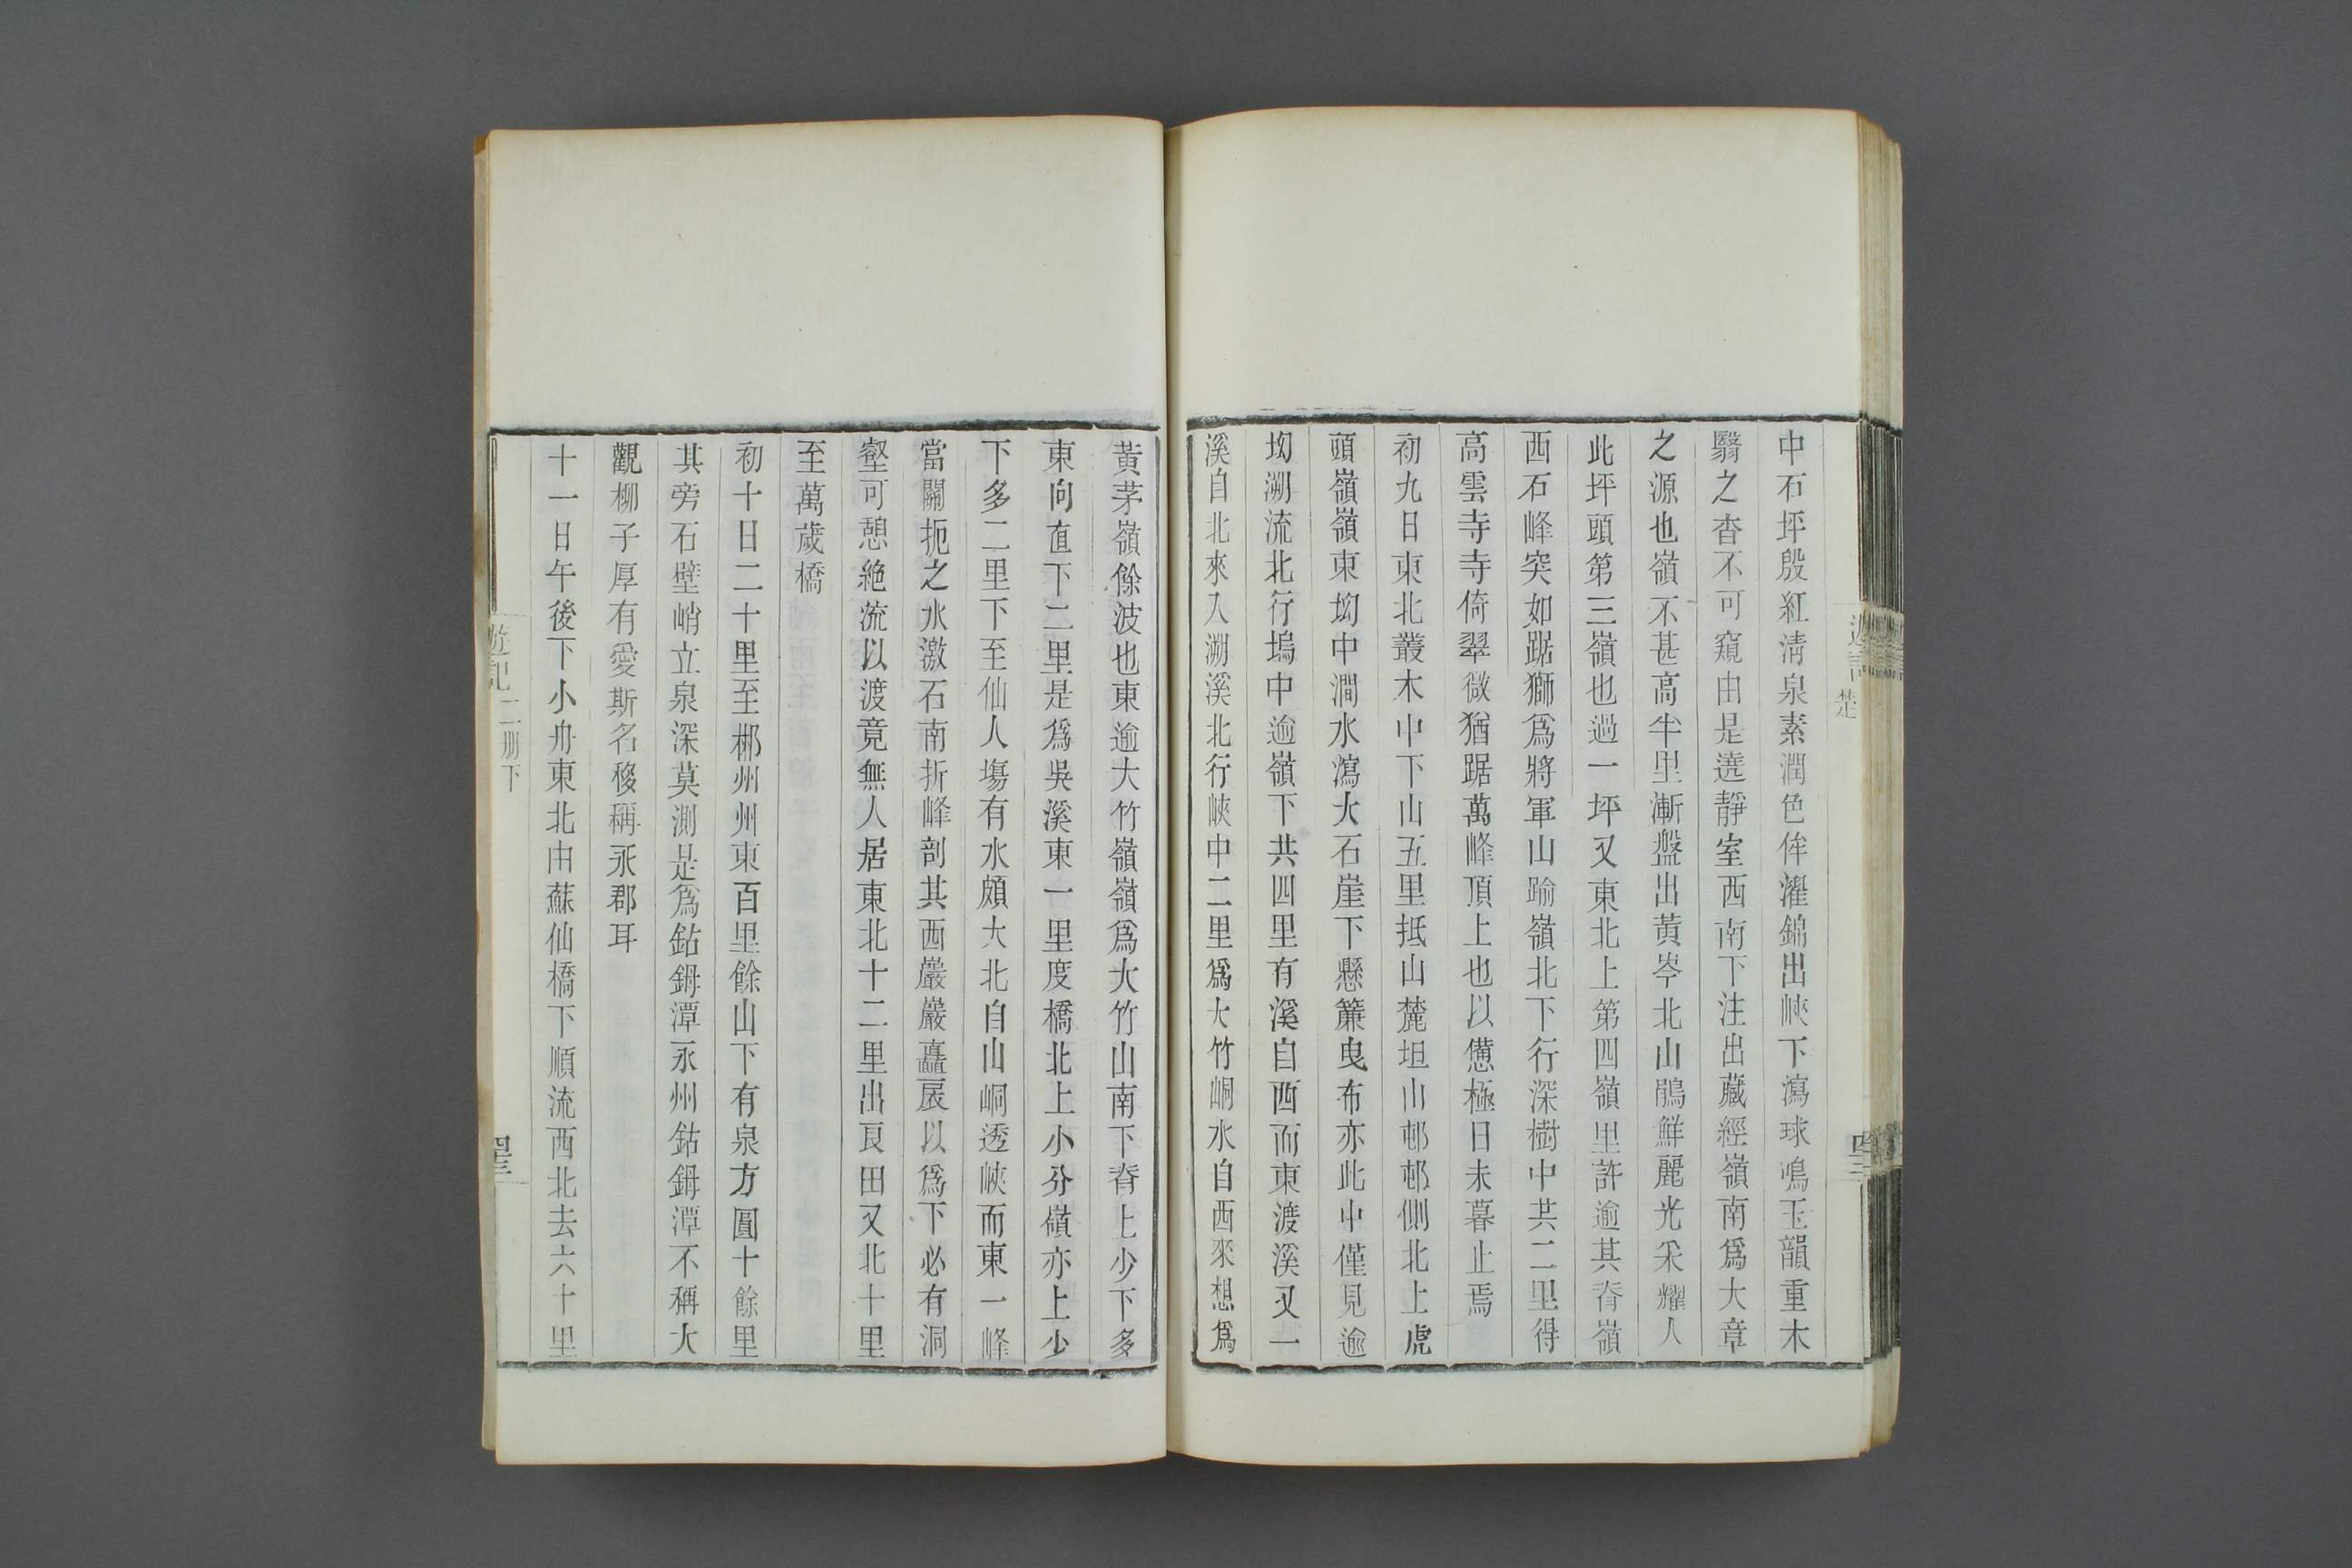 中石坪殷紅淸泉素潤色侔濯錦出峽下瀉球鳴玉韻重木
翳之杳不可窺由是遶靜室西南下注出藏經嶺南爲大章
之源也嶺不甚高半里漸盤出黄岑北山鵑鮮麗光采耀人
此坪頭第三嶺也過一坪又東北上第四嶺里許逾其脊嶺
西石峰突如踞獅爲將軍山踰嶺北下行深樹中共二里得
高雲寺寺倚翠微猶踞萬峰頂上也以憊極日未暮止焉
初九日東北叢木中下山五里抵山麓坦山邨邨側北上虎
頭嶺嶺東坳中澗水瀉大石崖下懸簾曳布亦此中僅見逾
坳溯流北行塢中逾嶺下共四里有溪自西而東渡溪又一
溪自北來入溯溪北行峽中二里爲大竹峒水自西來想爲
黃茅嶺餘波也東逾大竹嶺嶺爲大竹山南下脊上少下多
東向直下二里是爲吳溪東一里度橋北上小分嶺亦上少
下多二里下至仙人塲有水頗大北自山峒透峽而東一峰
當關扼之水激石南折峰剖其西巖巖矗扆以爲下必有洞
壑可憩絶流以渡竟無人居東北十二里出良田又北十里
至萬歲橋
初十日二十里至郴州州東百里餘山下有泉方圓十餘里
其旁石壁峭立泉深莫測是爲鈷鉧潭永州鈷鉧潭不稱大
觀柳子厚有愛斯名移稱永郡耳
十一日午後下小舟東北由蘇仙橋下順流西北去六十里
遊記 二册下
四三